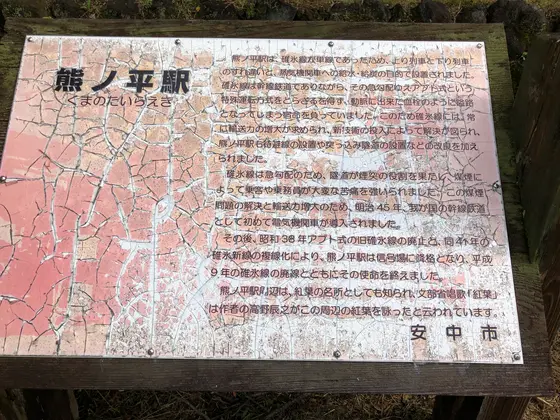 熊ノ平駅
くまのたいらえき
熊ノ平駅は、碓氷線が単線であったため、上り列車と下り列車
のすれ違いと、蒸気機関車への給水・給炭の目的で設置されました。
碓氷線は幹線鉄道でありながら、その急勾配ゆえアプト式という
特殊運転方式をとらざるを得ず、動脈に出来た血栓のように隘路
となってしまう宿命を負っていました。このため碓氷線には、常
に輸送力の増大が求められ、新技術の投入によって解決が図られ、
熊ノ平駅も待避線の設置や突っ込み隧道の設置などの改良を加え
られました。
碓氷線は急勾配のため、隧道が煙突の役割を果たし、煤煙
によって乗客や乗務員が大変な苦痛を強いられました。この煤煙
問題の解決と輸送力増大のため、明治45年、我が国の幹線鉄道
として初めて電気機関車が導入されました。
その後、昭和38年アプト式の旧碓氷線の廃止と、同41年の
碓氷新線の複線化により、熊ノ平駅は信号場に降格となり、平成
9年の碓氷線の廃線とともにその使命を終えました。
熊ノ平駅周辺は、紅葉の名所としても知られ、文部省唱歌「紅葉」
は作者の高野辰之がこの周辺の紅葉を詠ったと云われています。
安中市